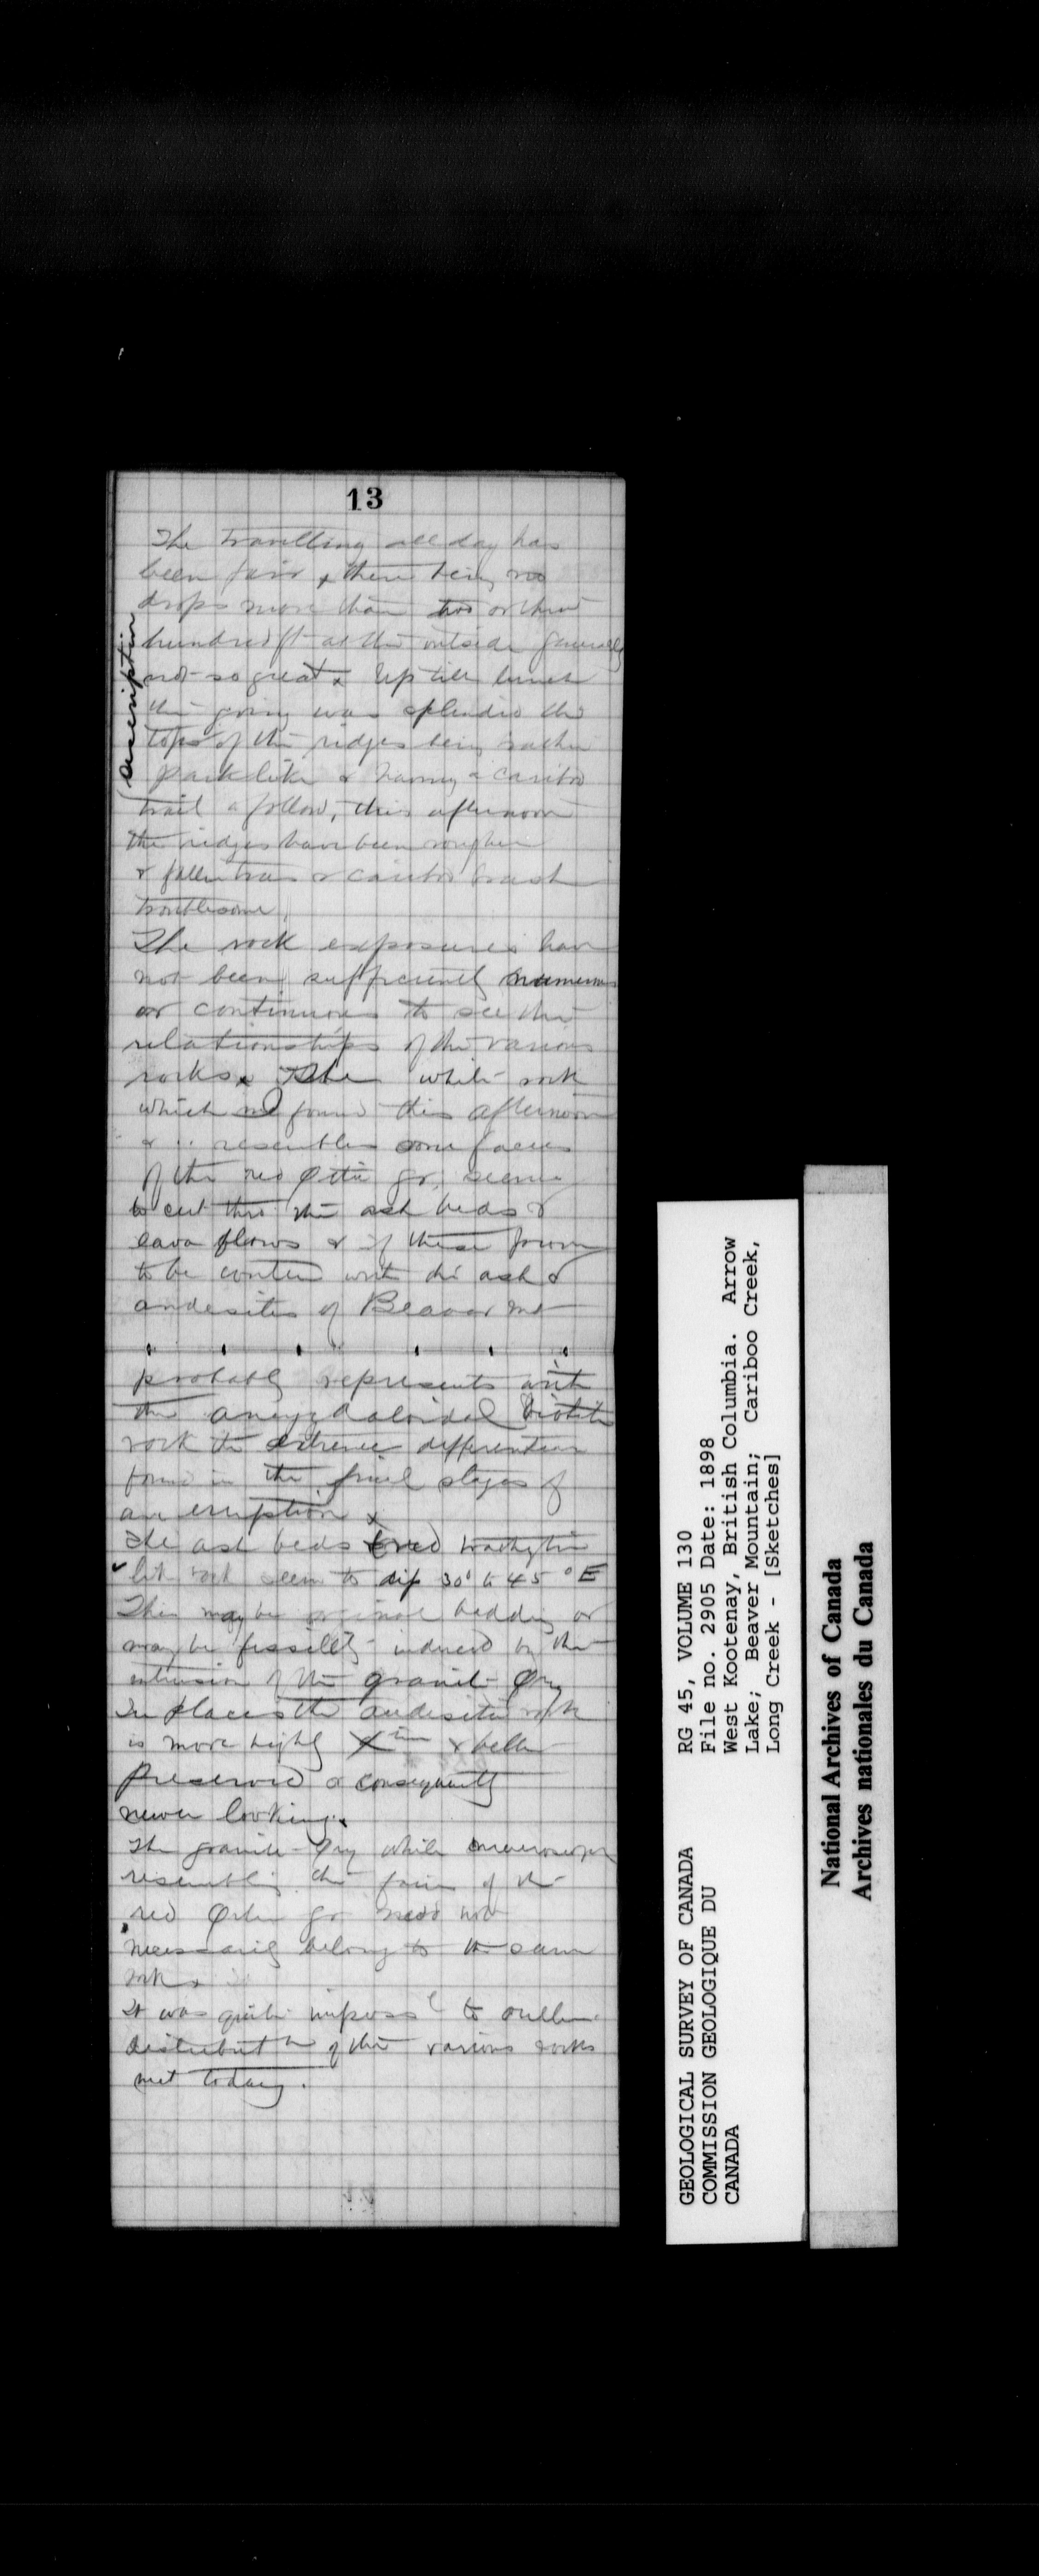 13
description
The travelling all day has
been fair x there being no
drops more than two or three
hundred ft at the outside generally
not so great x Up till lunch
the going was splendid the
tops of the ridges being rather
park like & having a caribo
trail to follow, this afternoon
the ridges have been rougher
& fallen trees & caribo brush
troublesome.
The rock exposures have
not been sufficiently numerous
or continuous to see the
relationships of the various
rocks x The white rock
which we found this afternoon
& resembles some facies
of the red gr. seems
to cut thro the ash beds &
lava flows & if these prove
to be with the ash &
andesites of Beaver Mt
probably represents with
the amygdaloidal biotite
rock the extreme differentiation
found in the final stages of
an eruption x
The ash beds
like rock seem to dip 30° to 45° E
This may be original bedding or
may be fissility induced by the
intrusion of the granite
In places the andesitic rock
is more highly & better
preserved & consequently
newer looking x
The granite while
resembling the facies of the
red gr need not
necessarily belong to the same
rock x
It was quite imposs to outline
distribut of the various rocks
met today.
RG 45, VOLUME 130
File no. 2905 Date: 1898
West Kootenay, British Columbia. Arrow
Lake; Beaver Mountain; Cariboo Creek,
Long Creek - [Sketches]
GEOLOGICAL SURVEY OF CANADA
COMMISSION GEOLOGIQUE DU
CANADA
National Archives of Canada
Archives nationales du Canada